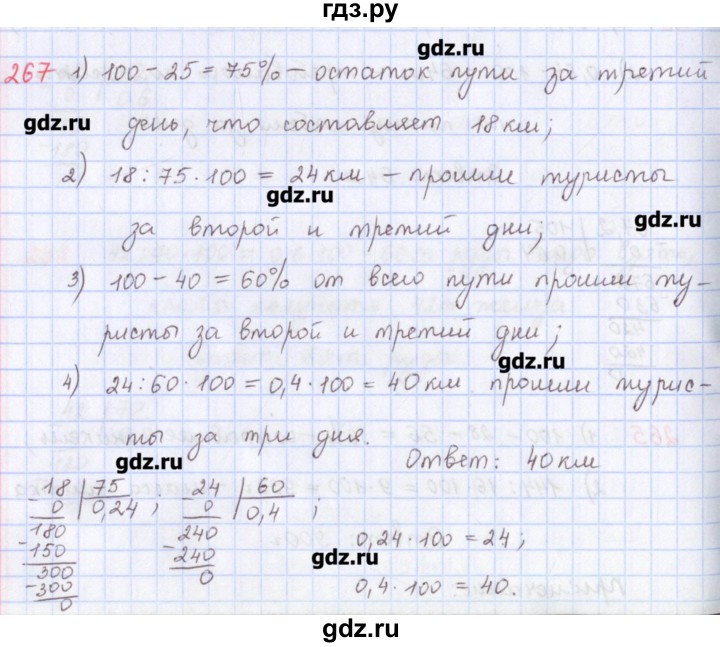 гдз.ру
267 1) 100 - 25 = 75% - остаток пути за третий
gdz.ru
gdz.ru
день, что составляет 18 км;
2) 18 : 75 · 100 = 24 км - прошли туристы
gdz.ru
gdz.ru
за второй и третий дни;
3) 100 - 40 = 60% от всего пути прошли ту-
gdz.ru
ристы за второй и третий дни;
gdz.ru
4) 24 : 60 · 100 = 0,4 · 100 = 40 км прошли турис-
ты за три дня.
gdz.ru
Ответ: 40 км
18 | 75 ; 24 | 60 ;
- 0 | 0,24 - 0 | 0,4
180 240
- 150 - 240
300 0
- 300
0
0,24 · 100 = 24;
gdz.ru
0,4 · 100 = 40.
gdz.ru